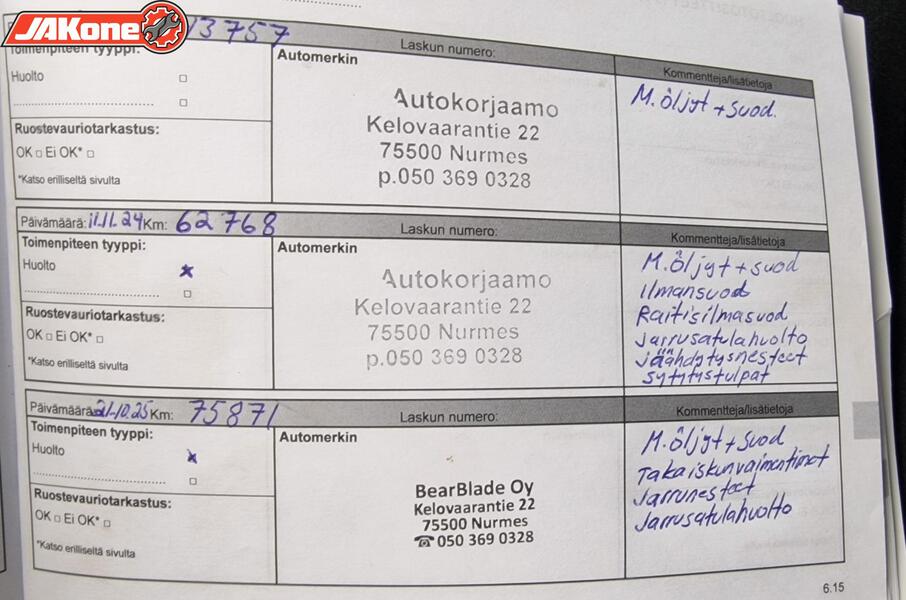 JAKone
3757
Laskun numero:
Toimenpiteen tyyppi:
Automerkin
Kommentteja/lisätietoja
Huolto
M. öljyt + suod.
Autokorjaamo
Kelovaarantie 22
75500 Nurmes
p.050 369 0328
Ruostevauriotarkastus:
OK Ei OK*
*Katso erilliseltä sivulta
Päivämäärä: 11.11.24 Km: 62 768
Laskun numero:
Kommentteja/lisätietoja
Toimenpiteen tyyppi:
Automerkin
Huolto x
M. öljyt + suod
Ilmansuod
Raitisilmasuod
Jarrusatulahuolto
Jäähdytysnesteet
Sytytystulpat
Autokorjaamo
Kelovaarantie 22
75500 Nurmes
p.050 369 0328
Ruostevauriotarkastus:
OK Ei OK*
*Katso erilliseltä sivulta
Päivämäärä: 21.10.25 Km: 75871
Laskun numero:
Kommentteja/lisätietoja
Toimenpiteen tyyppi:
Automerkin
Huolto x
M. öljyt + suod
Takaiskunvaimentimet
Jarrunesteet
Jarrusatulahuolto
BearBlade Oy
Kelovaarantie 22
75500 Nurmes
☎ 050 369 0328
Ruostevauriotarkastus:
OK Ei OK*
*Katso erilliseltä sivulta
6.15